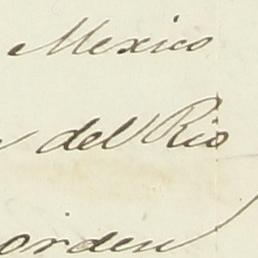 Mexico
del Rio
orden